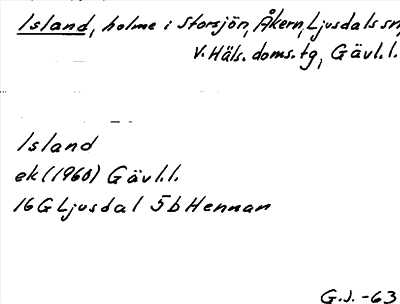 Island, holme i Storsjön, Åkern, Ljusdals sn,
V. Häls. doms.tg, Gävl.l.
Island
ek (1960) Gävl.l.
16G Ljusdal 5b Hennan
G.J. -63